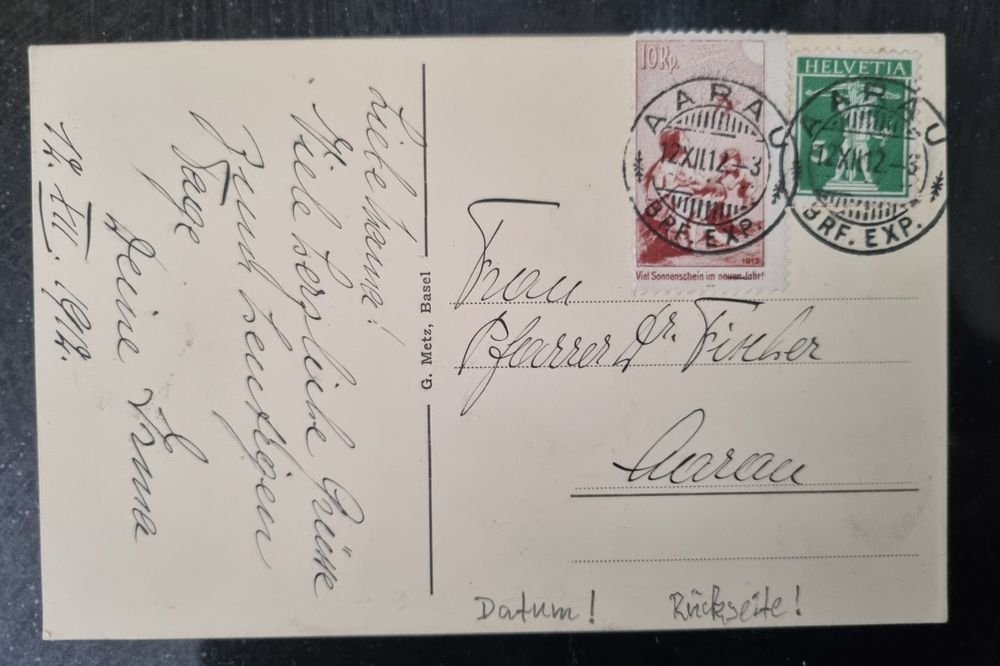 Liebe Hanna!
Viele herzliche Grüsse
zum heutigen
Tage
Deine Emma
12. XII. 1912.
G. Metz, Basel
10 Rp.
1912
Viel Sonnenschein im neuen Jahr!
HELVETIA
5
AARAU
12.XII.12.-3
BRF. EXP.
AARAU
12.XII.12.-6
BRF. EXP.
Frau
Pfarrer Dr. Fischer
Aarau
Datum! Rückseite!